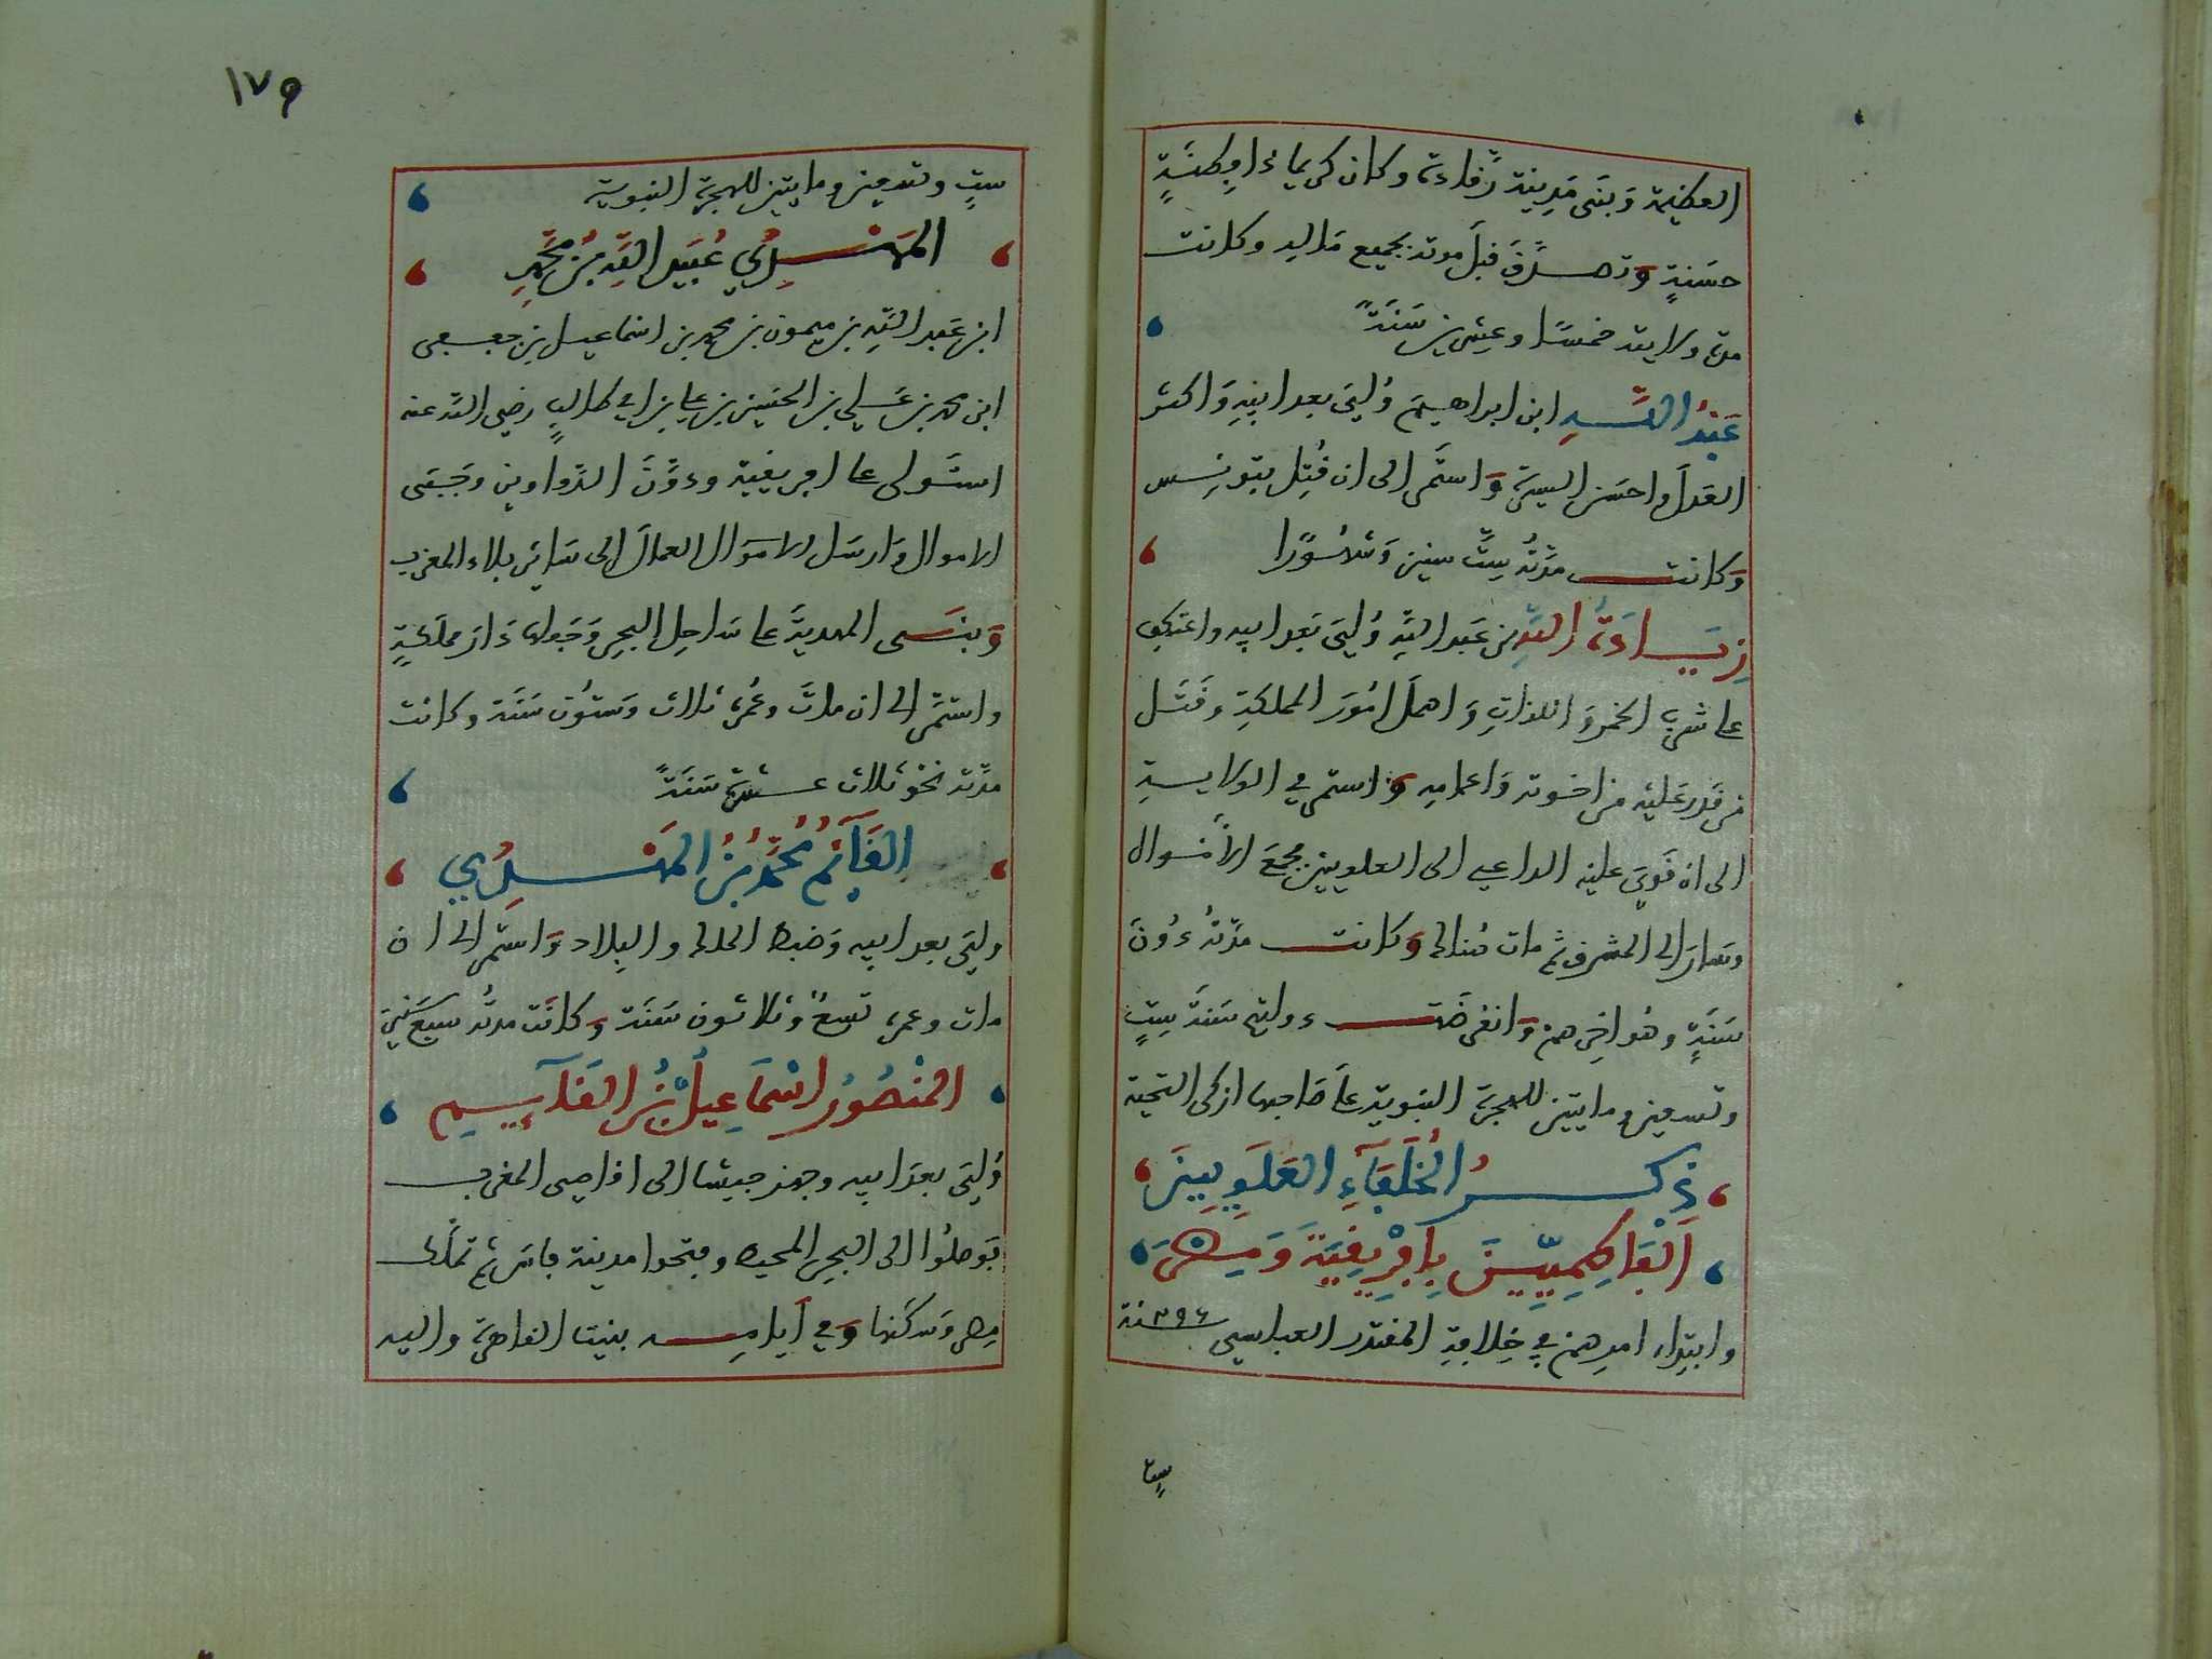 العظيمة وَبَنَى مَدِينة رَقادة وكان كريما ذا فِطنَةٍ
حسَنةٍ وَتصدَّقَ قبلَ موته بجميع مَاله وكانت
مدة ولايته خمسًا وعشرين سَنَةً
عَبْدُ اللهِ ابن ابراهيم وُلِيَ بعد ابيهِ وَاكثر
العَدلَ واحسَن السيرة وَاستمَّر إلى ان قُتِل بتونِس
وَكانت مدّتُه سِتَّ سنين وَشهُورًا
زِيَادَةُ اللهِ بن عَبد اللهِ وُلِيَ بَعد ابيه واعتكف
على شربِ الخمر وَ اللذاتِ وَ اهملَ امُورَ المملكةِ وقَتَل
من قَدر عَليْه من اخوته وَاعمامِه وَاستمر في الولايةِ
الى ان قَوِيَ عليْه الداعي الى العلويين فجمعَ الأمْوال
وسَارَ إلى المشرق ثم مات هُناك وَكانت مدّتُه دُونَ
سَنَةٍ وهُو اخِرهم وَانقرضَت دولتهم سَنَة سِتٍ
وتسعين ومايتين للهجرة النبوية على صَاحبها ازكى التحية
ذِكرُ الخُلَفَآءِ العَلَوِيينَ
اَلْفَاطِمِيّينَ بِإفْرِيقِيَةَ وَمِصْرَ
وابتداء امرهم في خِلافةِ المقتدر العباسي سنة ٢٩٦
ستٍ
١٧٩
ستٍ وتسعين ومايتين للهجرة النبوية
المَهْدِي عُبَيد اللهِ بْن مُحَمَّدِ
ابن عَبد اللهِ بن ميمون بن محمد بن اسْماعيل بن جعفر
ابن محمد بن عَلي بن الحسَين بن علي بن ابي طالبٍ رضي الله عنه
استَولى على افريقية ودوَّنَ الدَّواوين وَجَبَى
الاموال وَارسَل الاموَال العمالَ إلى سَائر بلاد المغرب
وَبنَى المهديَّة على سَاحِلِ البحرِ وَجَعلها دَار مملكةٍ
واستمَر الى ان ماتَ وعُمره ثلاث وَستُون سَنَة وكانت
مدّته نحْو ثلاث عشرة سَنَةً
القَآئِمُ مُحَمَّدُ بْنُ المَهْدِي
ولِيَ بعد ابيه وَضبط الملك والبلاد وَاستمر الى ان
مات وعمره تسعٌ وَثلاثون سَنَة وَكانَت مدتُه سَبع سنين
المنْصُورُ اسْمَاعِيلُ بْنُ القَآئِمِ
وُلِيَ بعدَ ابيه وجهز جيشا الى اقاصى المغرب
فوصلُوا الى البحرِ المحيط وفتحوا مدينة فاسَ ثم تملَّك
مِصر وَسكنها وَفي أيامِه بنيت القاهرة واليه